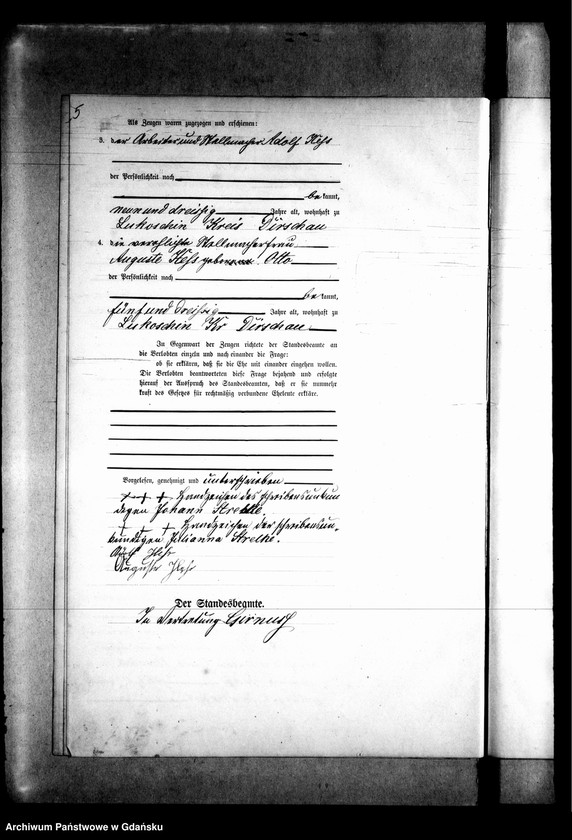 5
Als Zeugen waren zugezogen und erschienen:
3. der Arbeiter und Stallmacher Adolf Heß
der Persönlichkeit nach
be kannt,
neun und dreissig Jahre alt, wohnhaft zu
Lukoschin Kreis Dirschau
4. die verehlichte Stellmacherfrau
Auguste Heß geborene Otto
der Persönlichkeit nach
be kannt,
fünf und dreissig Jahre alt, wohnhaft zu
Lukoschin Kr Dirschau
In Gegenwart der Zeugen richtete der Standesbeamte an
die Verlobten einzeln und nach einander die Frage:
ob sie erklären, daß sie die Ehe mit einander eingehen wollen.
Die Verlobten beantworteten diese Frage bejahend und erfolgte
hierauf der Ausspruch des Standesbeamten, daß er sie nunmehr
kraft des Gesetzes für rechtmäßig verbundene Eheleute erkläre.
Vorgelesen, genehmigt und unterschrieben
+ + + Handzeichen des schreibensunkun
digen Johann Strelke.
+ + + Handzeichen der schreibensun-
kundigen Julianna Strelke.
Adolf Heß
Auguste Heß
Der Standesbeamte.
In Vertretung
Archiwum Państwowe w Gdańsku